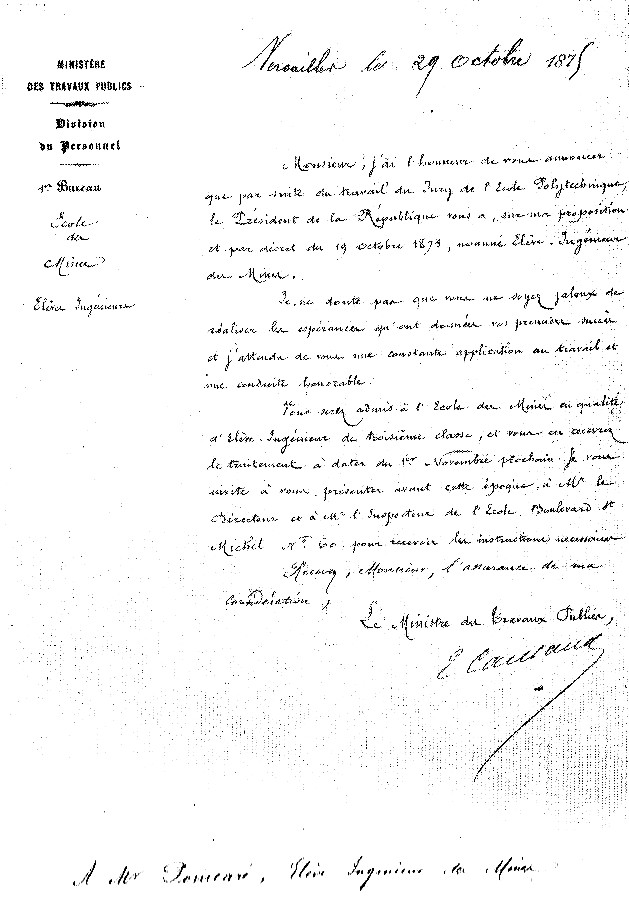 MINISTÈRE
DES TRAVAUX PUBLICS
Division
du Personnel
1er Bureau
École
des
Mines
Elève Ingénieur
Versailles le 29 Octobre 1875
Monsieur, j'ai l'honneur de vous annoncer
que par suite du travail du Jury de l'Ecole Polytechnique,
le Président de la République vous a, sur ma proposition
et par décret du 19 octobre 1875, nommé Elève-Ingénieur
des Mines.
Je ne doute pas que vous ne soyez jaloux de
réaliser les espérances qu'ont données vos premiers succès
et j'attends de vous une constante application au travail et
une conduite honorable.
Vous serez admis à l'Ecole des Mines en qualité
d'Elève-Ingénieur de troisième classe, et vous en recevrez
le traitement à dater du 1er Novembre prochain. Je vous
invite à vous présenter avant cette époque, à Mr le
Directeur et à Mr l'Inspecteur de l'Ecole, Boulevard St
Michel No 60 pour recevoir les instructions nécessaires
Recevez, Monsieur, l'assurance de ma
considération,
Le Ministre des Travaux Publics,
E Caillaux
A Mr Poincaré, Elève Ingénieur des Mines